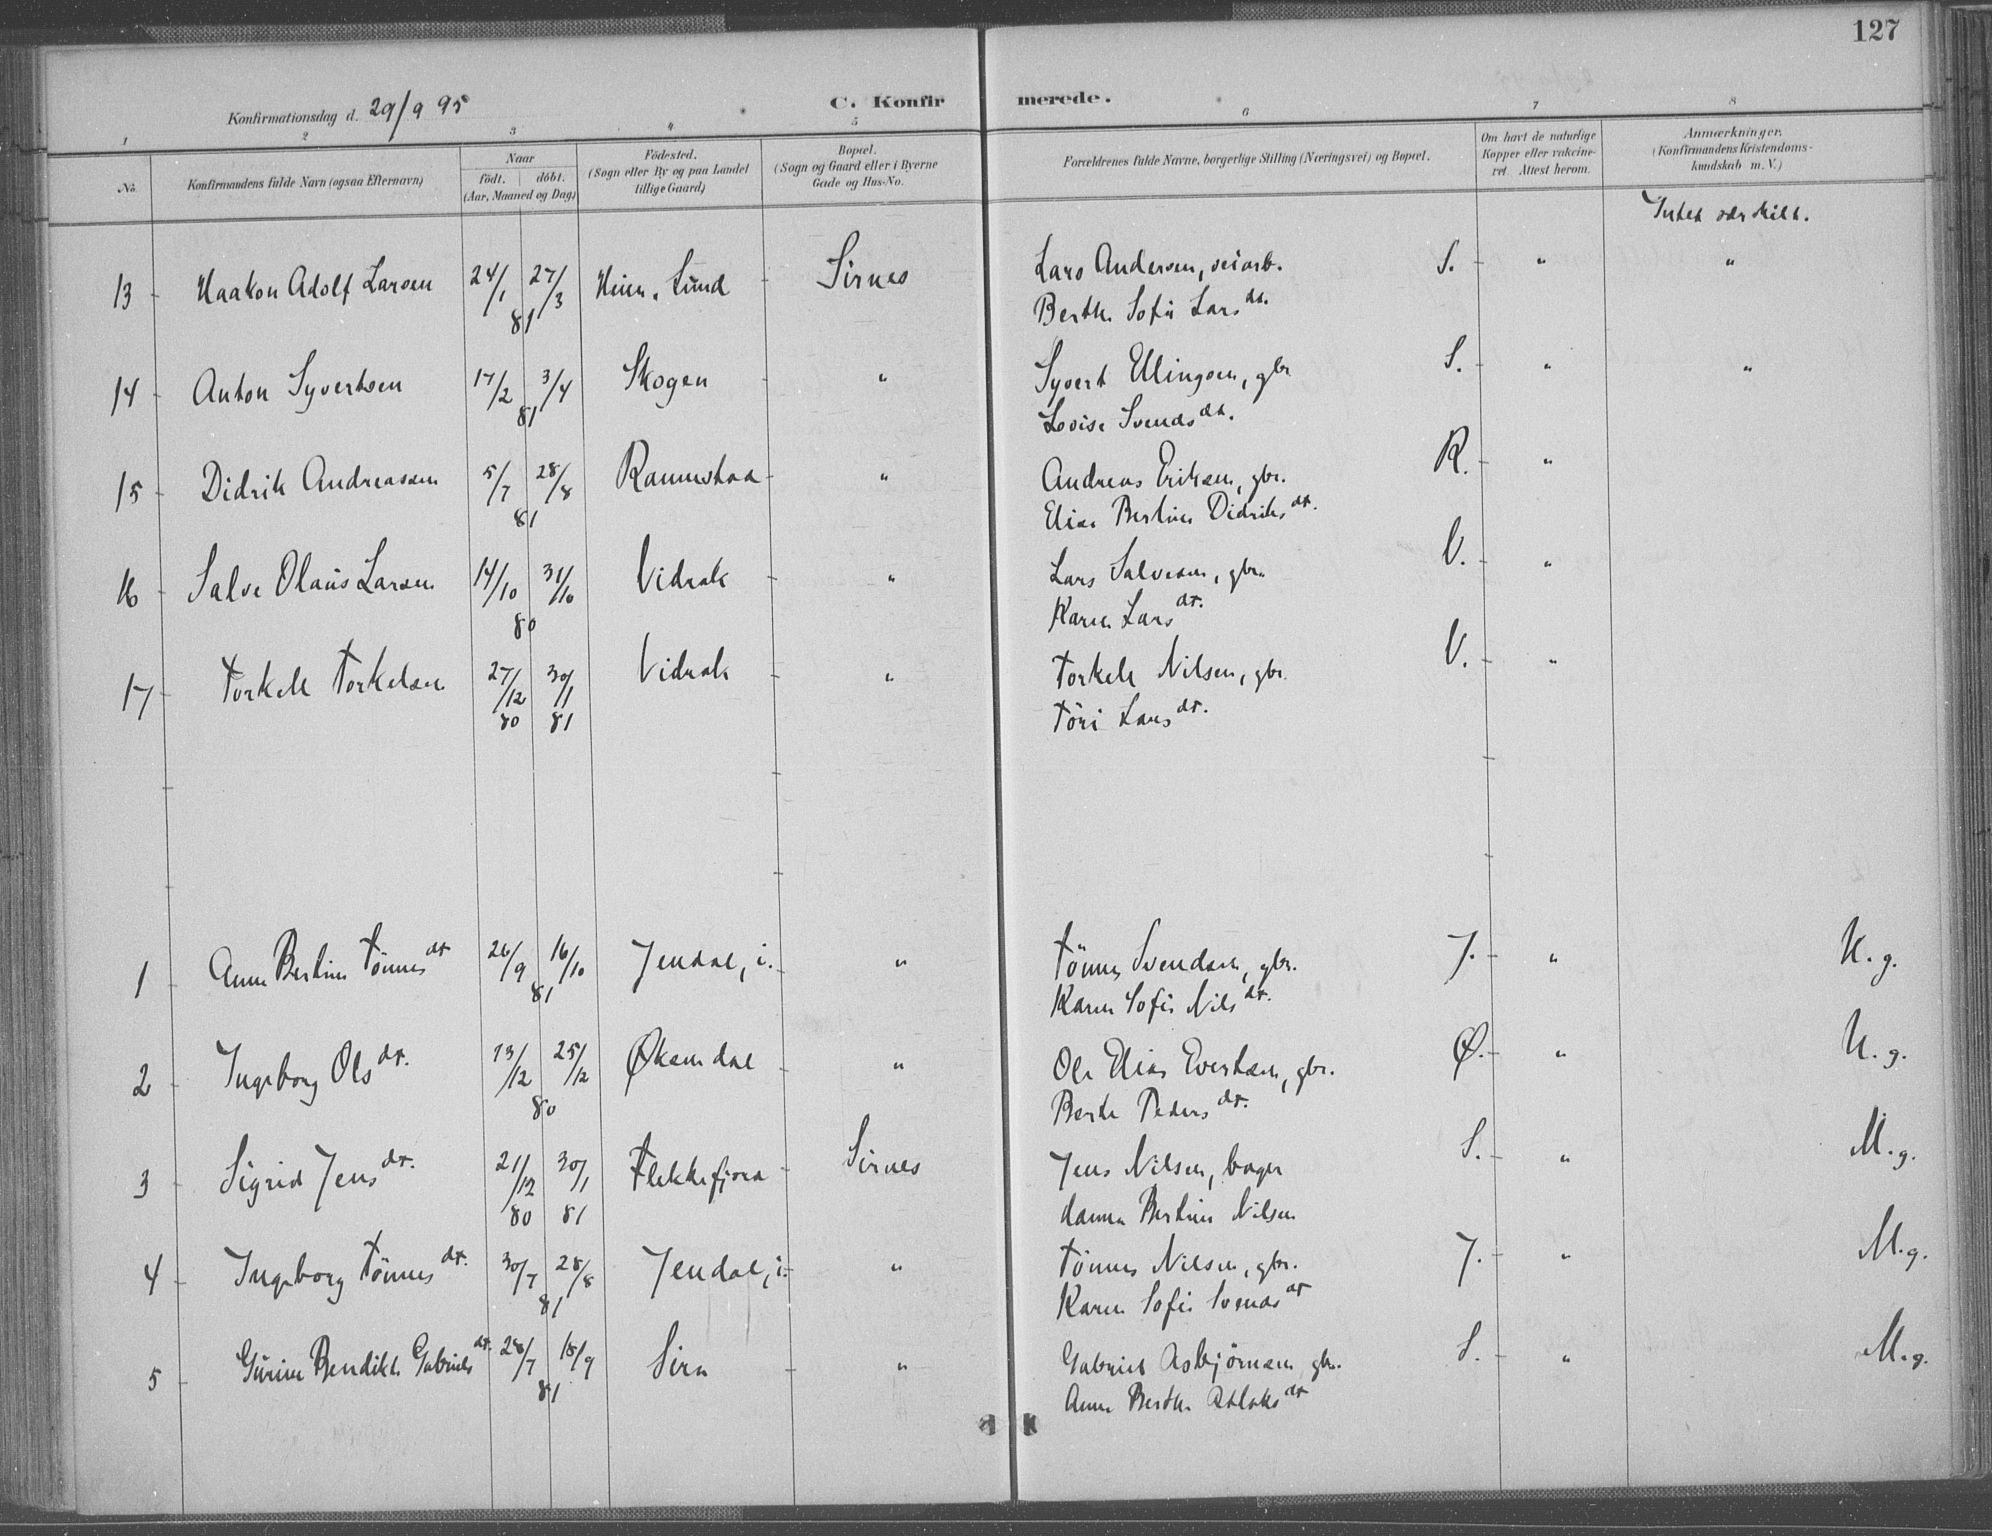 127
Konfirmationsdag d. 29/9 95 C. Konfirmerede.
1 2 3 4 5 6 7 8
No. Konfirmandens fulde Navn (ogsaa Efternavn) Naar födt. döbt. (Aar, Maaned og Dag) Födested. (Sogn eller By og paa Landet tillige Gaard) Bopæl. (Sogn og Gaard eller i Byerne Gade og Hus-No. Forældrenes fulde Navne, borgerlige Stilling (Næringsvei) og Bopæl. Om havt de naturlige Kopper eller vakcineret. Attest herom. Anmærkninger. (Konfirmandens Kristendomskundskab m. V.)
Intet særskilt.
13 Haakon Adolf Larsen 24/1 27/3 81 Lund Sirnes Lars Andersen, veiarb. S. " "
Berthe Sofie Larsdt.
14 Anton Syvertsen 17/2 3/4 81 Skogen " Syvert Ellingsen, gbr S. " "
Lovise Svendsdt.
15 Didrik Andreassen 5/7 28/8 81 " Andreas Eriksen, gbr. R. "
Elise Bertine Didriksdt.
16 Salve Olaus Larsen 14/10 31/10 80 Vidrak " Lars Salvesen, gbr. V. "
Karen Larsdt.
17 Torkell Torkelsen 27/12 80 30/1 81 Vidrak " Torkell Nilsen, gbr. V. "
Töri Larsdt.
1 Anne Bertine Tönnesdt 26/9 16/10 81 Jendal, i. " Tönnes Svendsen, gbr. J. " M.g.
Karen Sofie Nilsdt.
2 Ingeborg Olsdt. 13/12 25/12 80 Øksendal " Ole Elias Evertsen, gbr. Ø. " M.g.
Berte Pedersdt.
3 Sigrid Jensdt. 21/12 80 30/1 81 Flekkefjord Sirnes Jens Nilsen, bager S. " M.g.
Hanna Bertine Nilsen
4 Ingeborg Tönnesdt. 30/7 28/8 81 Jendal, i. " Tönnes Nilsen, gbr. J. " M.g.
Karen Sofie Svendsdt
5 Gurine Bendikte Gabrielsdt. 28/7 18/9 81 Sira " Gabriel Asbjörnsen gbr. S. " M.g.
Anne Berthe Atlaksdt